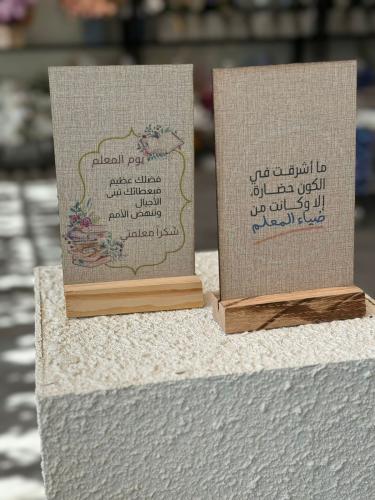 يوم المعلم
فضلك عظيم
فبعطائك تبنى
الأجيال
وتنهض الأمم
شكرا معلمتي
ما أشرقت في
الكون حضارة،
إلا وكانت من
ضياء المعلم